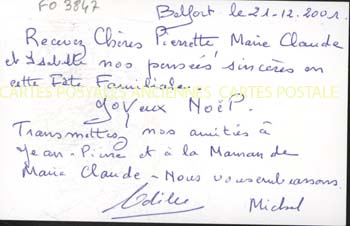 FO 3847
Belfort le 21-12-2001.
Recevez Chères Pierrette, Marie Claude
et Isabelle nos pensées sincères en
cette Fête Familiale.
CARTES POSTALES ANCIENNES CARTES POSTALE
JOYEUX NOËL.
Transmettez nos amitiés à
Jean-Pierre et à la Maman de
Marie Claude - Nous vous embrassons.
Odile Michel